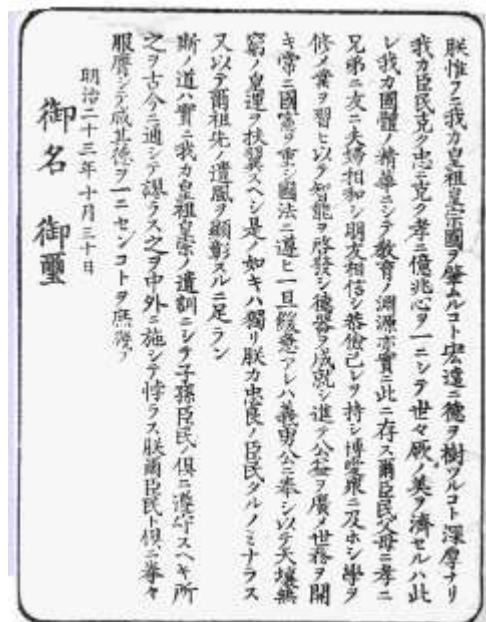 朕惟フニ我カ皇祖皇宗國ヲ肇ムルコト宏遠ニ德ヲ樹ツルコト深厚ナリ
我カ臣民克ク忠ニ克ク孝ニ億兆心ヲ一ニシテ世々厥ノ美ヲ濟セルハ此
レ我カ國體ノ精華ニシテ教育ノ淵源亦實ニ此ニ存ス爾臣民父母ニ孝ニ
兄弟ニ友ニ夫婦相和シ朋友相信シ恭儉己レヲ持シ博愛衆ニ及ホシ學ヲ
修メ業ヲ習ヒ以テ智能ヲ啓發シ德器ヲ成就シ進テ公益ヲ廣メ世務ヲ開
キ常ニ國憲ヲ重シ國法ニ遵ヒ一旦緩急アレハ義勇公ニ奉シ以テ天壤無
窮ノ皇運ヲ扶翼スヘシ是ノ如キハ獨リ朕カ忠良ノ臣民タルノミナラス
又以テ爾祖先ノ遺風ヲ顯彰スルニ足ラン
斯ノ道ハ實ニ我カ皇祖皇宗ノ遺訓ニシテ子孫臣民ノ俱ニ遵守スヘキ所
之ヲ古今ニ通シテ謬ラス之ヲ中外ニ施シテ悖ラス朕爾臣民ト俱ニ拳々
服膺シテ咸其德ヲ一ニセンコトヲ庶幾フ
明治二十三年十月三十日
御名 御璽